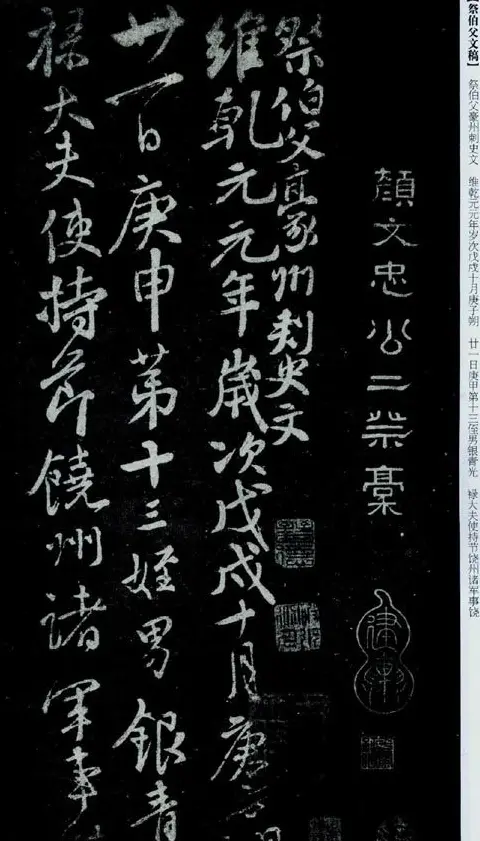 【祭伯父文稿】 祭伯父豪州刺史文 维乾元元年岁次戊戌十月庚子朔 廿一日庚甲第十三侄男银青光 禄大夫使持节饶州诸军事饶
顏文忠公二祭稾
祭伯父豪州刺史文
維乾元元年歲次戊戌十月庚子朔
廿一日庚申第十三姪男銀青
祿大夫使持節饒州諸軍事